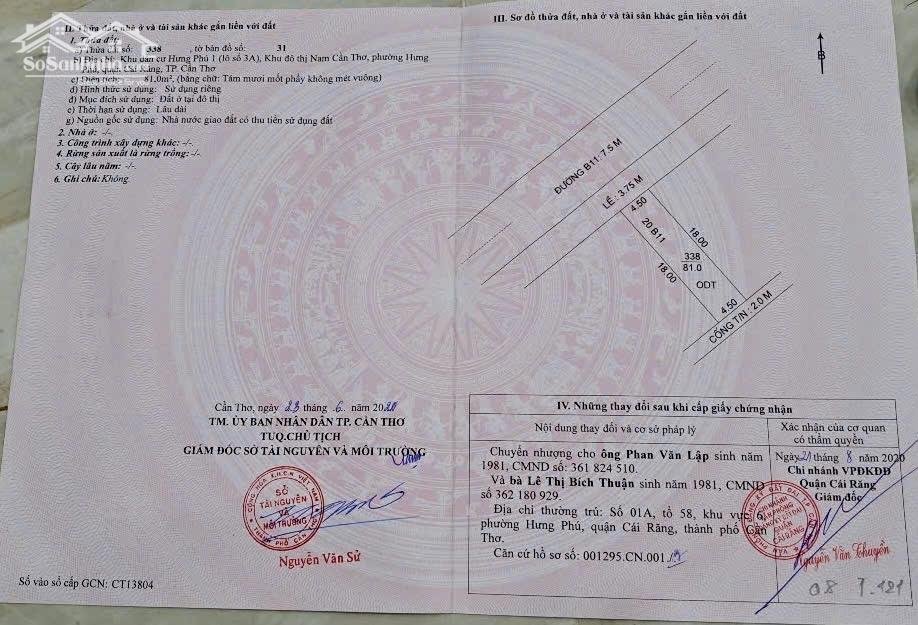 II. Thửa đất, nhà ở và tài sản khác gắn liền với đất
1. Thửa đất:
a) Thửa đất số: 338 , tờ bản đồ số: 31
b) Địa chỉ: Khu dân cư Hưng Phú 1 (lô số 3A), Khu đô thị Nam Cần Thơ, phường Hưng
Phú, quận Cái Răng, TP. Cần Thơ
c) Diện tích: 81,0m², (bằng chữ: Tám mươi mốt phẩy không mét vuông)
d) Hình thức sử dụng: Sử dụng riêng
đ) Mục đích sử dụng: Đất ở tại đô thị
e) Thời hạn sử dụng: Lâu dài
g) Nguồn gốc sử dụng: Nhà nước giao đất có thu tiền sử dụng đất
2. Nhà ở: -/-
3. Công trình xây dựng khác: -/-
4. Rừng sản xuất là rừng trồng: -/-
5. Cây lâu năm: -/-
6. Ghi chú: Không.
SoSanhNha
Cần Thơ, ngày 23 tháng 6 năm 2020
TM. ỦY BAN NHÂN DÂN TP. CẦN THƠ
TUQ.CHỦ TỊCH
GIÁM ĐỐC SỞ TÀI NGUYÊN VÀ MÔI TRƯỜNG
CỘNG HÒA X.H.C.N VIỆT NAM
SỞ
TÀI NGUYÊN
VÀ
MÔI TRƯỜNG
THÀNH PHỐ CẦN THƠ
Nguyễn Văn Sử
Số vào sổ cấp GCN: CT13804
III. Sơ đồ thửa đất, nhà ở và tài sản khác gắn liền với đất
B
ĐƯỜNG B11: 7.5 M
LỀ : 3.75 M
4.50
20 B11
18.00
338
81.0
18.00
ODT
4.50
CỐNG T/N : 2.0 M
IV. Những thay đổi sau khi cấp giấy chứng nhận
Nội dung thay đổi và cơ sở pháp lý
Xác nhận của cơ quan
có thẩm quyền
Chuyển nhượng cho ông Phan Văn Lập sinh năm
1981, CMND số: 361 824 510.
Và bà Lê Thị Bích Thuận sinh năm 1981, CMND
số 362 180 929.
Địa chỉ thường trú: Số 01A, tổ 58, khu vực 6,
phường Hưng Phú, quận Cái Răng, thành phố Cần
Thơ.
Căn cứ hồ sơ số: 001295.CN.001
Ngày 21 tháng 8 năm 2020
Chi nhánh VPĐKĐĐ
Quận Cái Răng
Giám đốc
CHI NHÁNH
VĂN PHÒNG
ĐĂNG KÝ ĐẤT ĐAI
QUẬN
CÁI RĂNG
Nguyễn Văn Thuyền